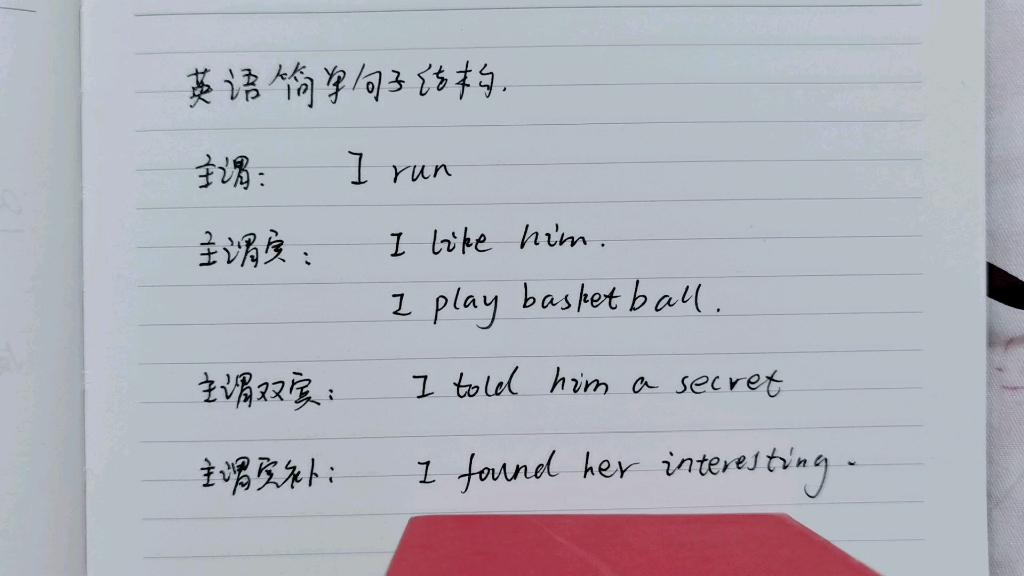 英语简单句子结构.
主谓: I run
主谓宾: I like him.
I play basketball.
主谓双宾: I told him a secret
主谓宾补: I found her interesting.